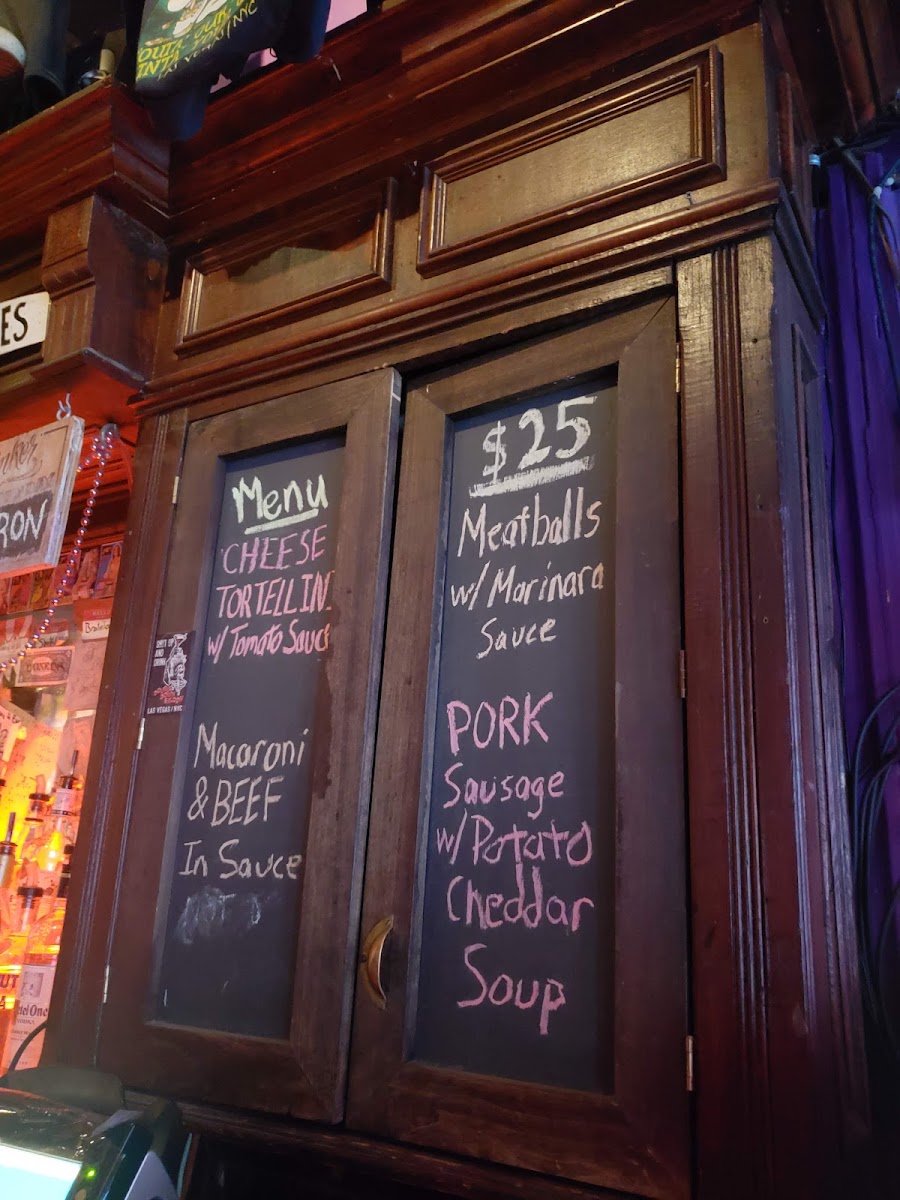 ES
RON
Menu
CHEESE
TORTELLINI
w/ Tomato Sauce
Macaroni
& BEEF
In Sauce
$25
Meatballs
w/ Marinara
Sauce
PORK
Sausage
w/ Potato
Cheddar
Soup
AND
LAS VEGAS / NYC